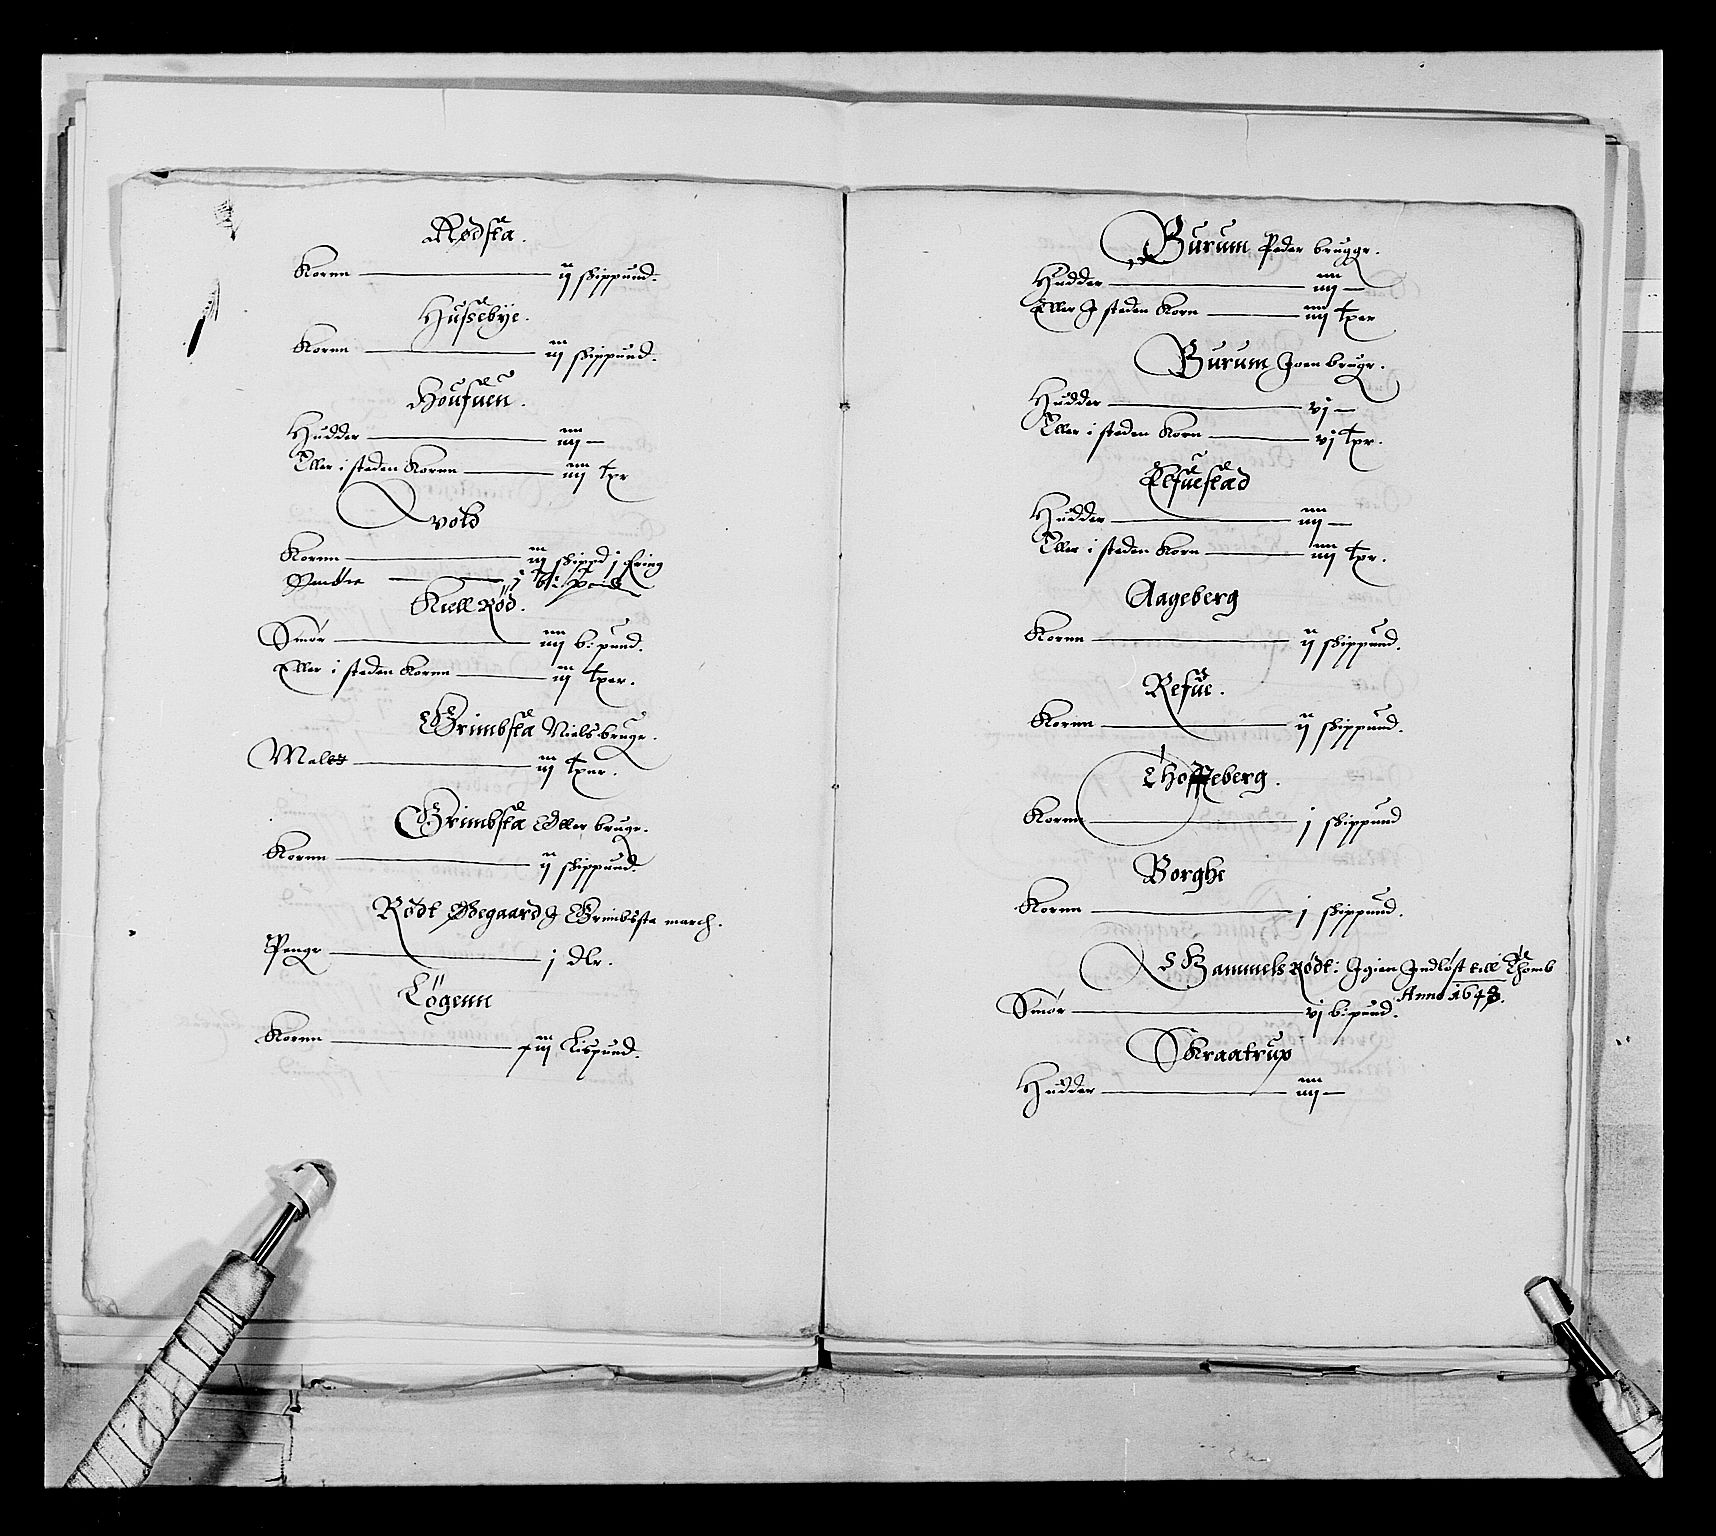 Rødsta.
Kornn — ij skippund.
Husebye.
Kornn — iij skippund.
Houfuen.
Hudder — iiij —
Eller i steden Kornn — iiij tpr
Qvold
Kornn — iij skippd j fring
j b: pund
KiellRöd.
Smör — iiij b: pund.
Eller i steden Kornn — iij tper.
Grimbsta Niels bruge.
Maltt — iij tper.
Grimbsta Eller bruge.
Kornn — ij skippund.
Rödt Ødegaard J Grimbssta march.
Penge — j dlr.
Lögenn
Kornn — iij Lispund.
Burum Peder brugge.
Hudder — iiij —
Eller J steden Korn — iiij tper
Burum Joen bruge.
Hudder — vj —
Eller i steden Korn — vj tpr.
Elfuestad
Hudder — iiij —
Eller i steden Korn — iiij tpr.
Aageberg
Kornn — ij skippund.
Refue.
Kornn — ij skippund.
Thoffteberg.
Kornn — j skippund
Borghe
Kornn — j skippund.
Gammelsrödt: Igien Jndløst till Thomb
Anno 1648.
Smör — vj b: pund.
Skraatrup
Hudder — iiij —